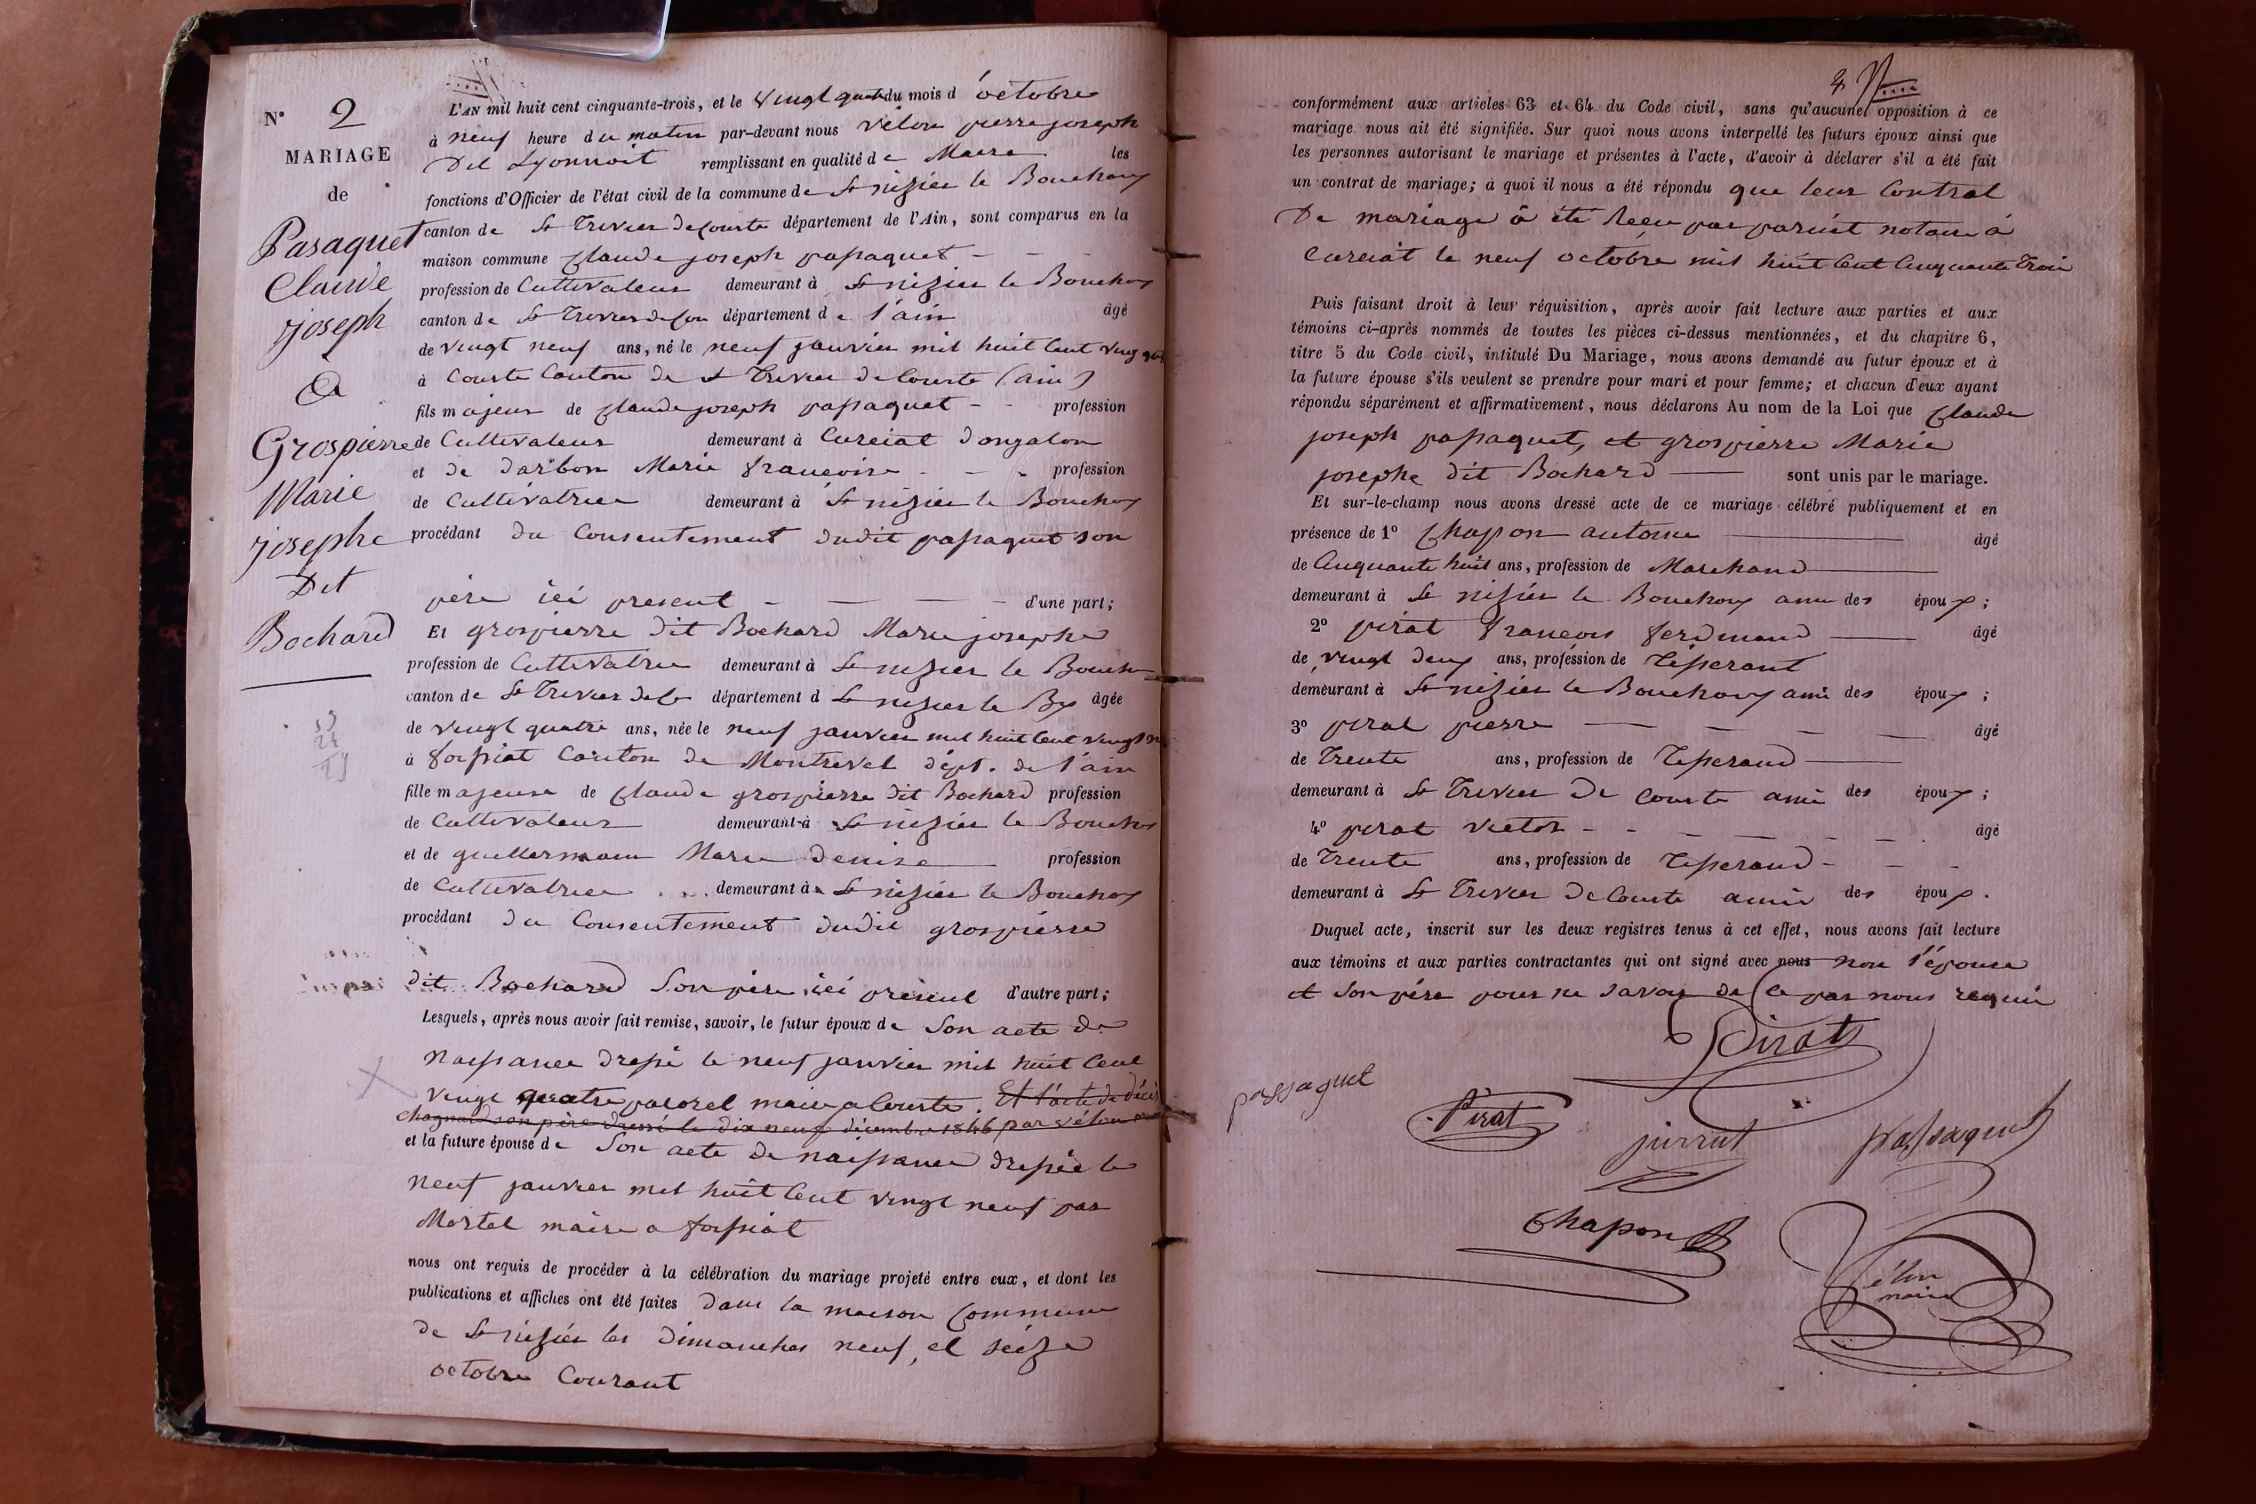 N° 2
MARIAGE
de
Pasaquet
Claude
joseph
&
Grospierre
Marie
josephe
Dit
Bochard
L'AN mil huit cent cinquante-trois, et le vingt quatre du mois d'octobre
à neuf heure du matin par-devant nous vélon pierre joseph
Dit Lyonnoit remplissant en qualité de Maire les
fonctions d'Officier de l'état civil de la commune de St nizier le Bouchoux
canton de St Trivier de Courte département de l'Ain, sont comparus en la
maison commune Claude joseph passaquet
profession de Cultivateur demeurant à St nizier le Bouchoux
canton de St Trivier de Cou département de l'ain âgé
de vingt neuf ans, né le neuf janvier mil huit cent vingt
à Courte Canton de St Trivier de Courte (ain)
fils majeur de Claude joseph passaquet profession
de Cultivateur demeurant à Curciat dongalon
et de darbon Marie françoise profession
de Cultivatrice demeurant à St nizier le Bouchoux
procédant du Consentement dudit passaquet son
père ici present d'une part;
Et grospierre dit Bochard Marie josephe
profession de Cultivatrice demeurant à St nizier le Bouchoux
canton de St Trivier de C département d St nizier le Bx âgée
de vingt quatre ans, née le neuf janvier mil huit cent vingt
à foissiat Canton de Montrevel dépt. de l'ain
fille majeure de Claude grospierre dit Bochard profession
de Cultivateur demeurant à St nizier le Bouchoux
et de guillermain Marie denise profession
de Cultivatrice demeurant à St nizier le Bouchoux
procédant du Consentement dudit grospierre
dit Bochard Son père ici présent d'autre part;
Lesquels, après nous avoir fait remise, savoir, le futur époux de Son acte de
naissance dressé le neuf janvier mil huit Cent
vingt quatre par maire a Courte. Et l'acte de décès
Chagnard son père dressé le dix neuf décembre 1846 par vélon
et la future épouse de Son acte de naissance dressée le
neuf janvier mil huit Cent vingt neuf par
Mortel maire a foissiat
nous ont requis de procéder à la célébration du mariage projeté entre eux, et dont les
publications et affiches ont été faites dans la maison Commune
de St nizier les dimanches neuf, et séize
octobre Courant
conformément aux articles 63 et 64 du Code civil, sans qu'aucune opposition à ce
mariage nous ait été signifiée. Sur quoi nous avons interpellé les futurs époux ainsi que
les personnes autorisant le mariage et présentes à l'acte, d'avoir à déclarer s'il a été fait
un contrat de mariage; à quoi il nous a été répondu que leur Contrat
De mariage â été Reçu par notaire à
Curciat le neuf octobre mil huit Cent Cinquante Trois
Puis faisant droit à leur réquisition, après avoir fait lecture aux parties et aux
témoins ci-après nommés de toutes les pièces ci-dessus mentionnées, et du chapitre 6,
titre 5 du Code civil, intitulé Du Mariage, nous avons demandé au futur époux et à
la future épouse s'ils veulent se prendre pour mari et pour femme; et chacun d'eux ayant
répondu séparément et affirmativement, nous déclarons Au nom de la Loi que Claude
joseph passaquet, et grospierre Marie
josephe dit Bochard sont unis par le mariage.
Et sur-le-champ nous avons dressé acte de ce mariage célébré publiquement et en
présence de 1° Chapon antoine âgé
de Cinquante huit ans, profession de Marchand
demeurant à St nizier le Bouchoux ami des époux;
2° pirat françois ferdinand âgé
de vingt deux ans, profession de Tisserant
demeurant à St nizier le Bouchoux ami des époux;
3° pirat pierre âgé
de Trente ans, profession de Tisserand
demeurant à St Trivier De Courte ami des époux;
4° pirat victor âgé
de Trente ans, profession de Tisserand
demeurant à St Trivier de Courte ami des époux.
Duquel acte, inscrit sur les deux registres tenus à cet effet, nous avons fait lecture
aux témoins et aux parties contractantes qui ont signé avec nous non l'épouse
et Son père pour ne savoir de Ce par nous requis
Pirat
passaquet
Pirat
passaquet
Chapon
Vélon
maire